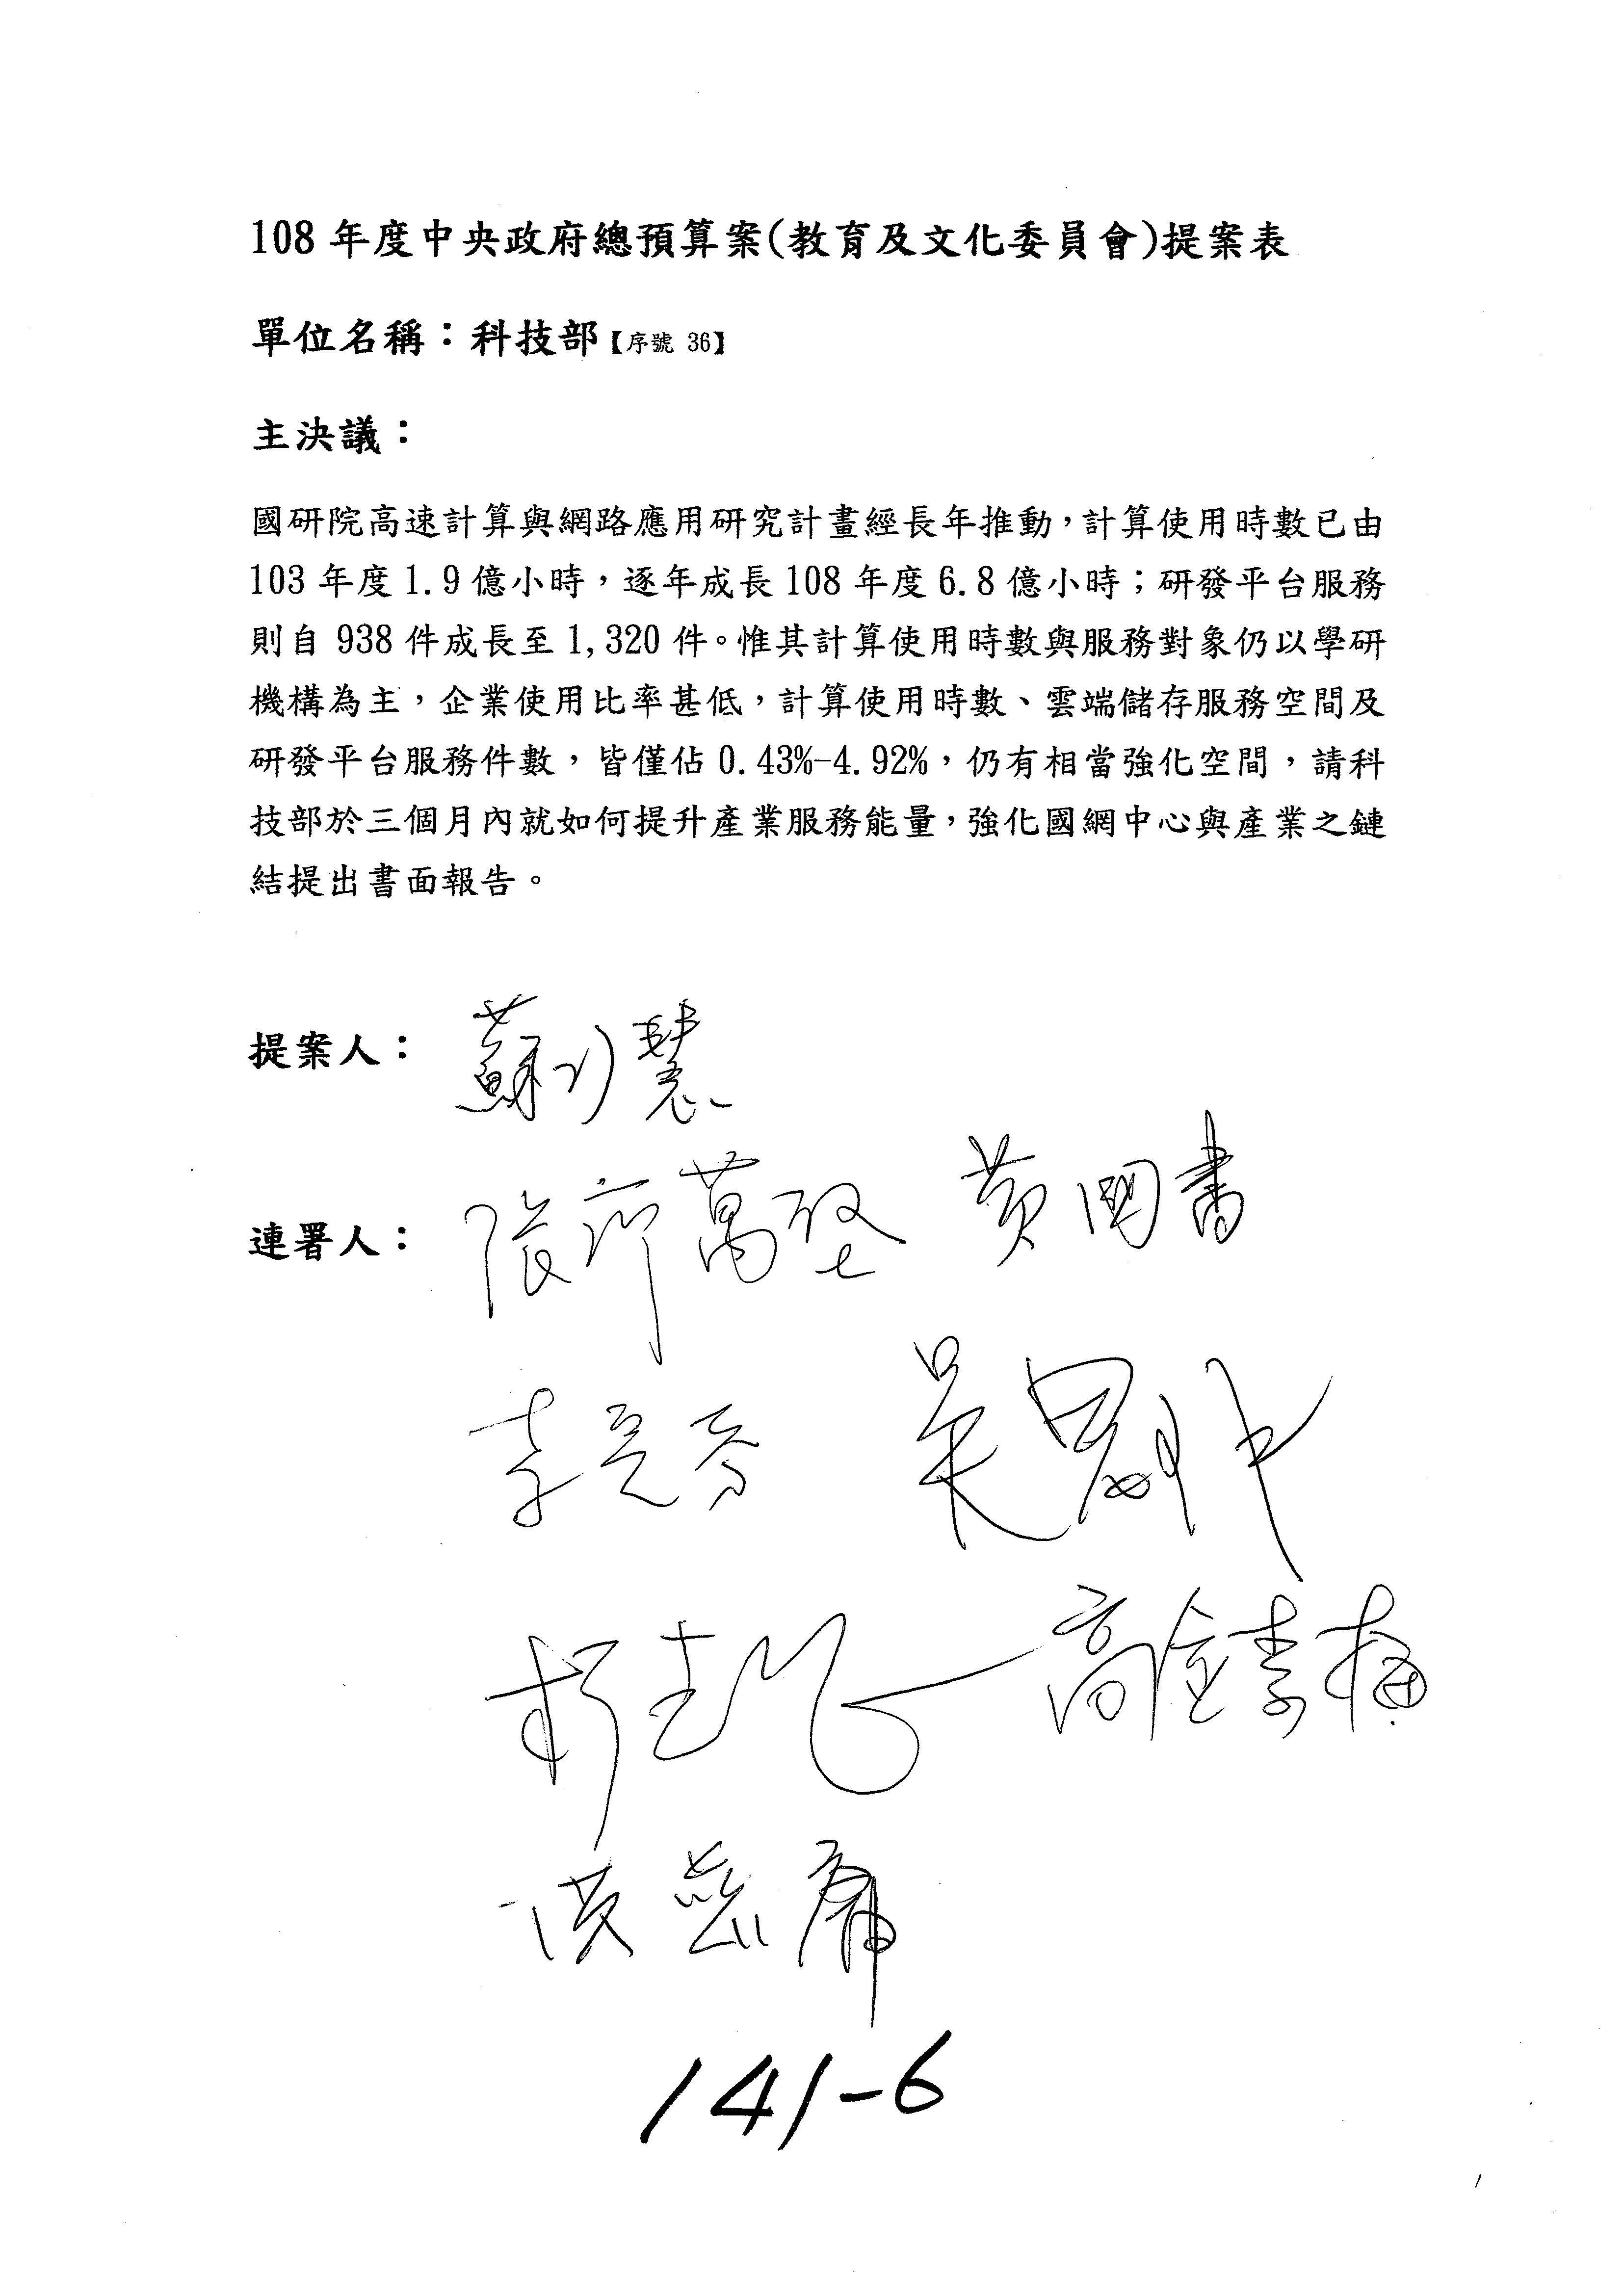 108 年度中央政府總預算案(教育及文化委員會)提案表
單位名稱：科技部【序號 36】
主決議：
國研院高速計算與網路應用研究計畫經長年推動，計算使用時數已由
103 年度 1.9 億小時，逐年成長 108 年度 6.8 億小時；研發平台服務
則自 938 件成長至 1,320 件。惟其計算使用時數與服務對象仍以學研
機構為主，企業使用比率甚低，計算使用時數、雲端儲存服務空間及
研發平台服務件數，皆僅佔 0.43%-4.92%，仍有相當強化空間，請科
技部於三個月內就如何提升產業服務能量，強化國網中心與產業之鏈
結提出書面報告。
提案人：蘇巧慧
連署人：張廖萬堅 黃國書
李麗芬 吳思瑤
柯志恩 高金素梅
洪慈庸
141-6